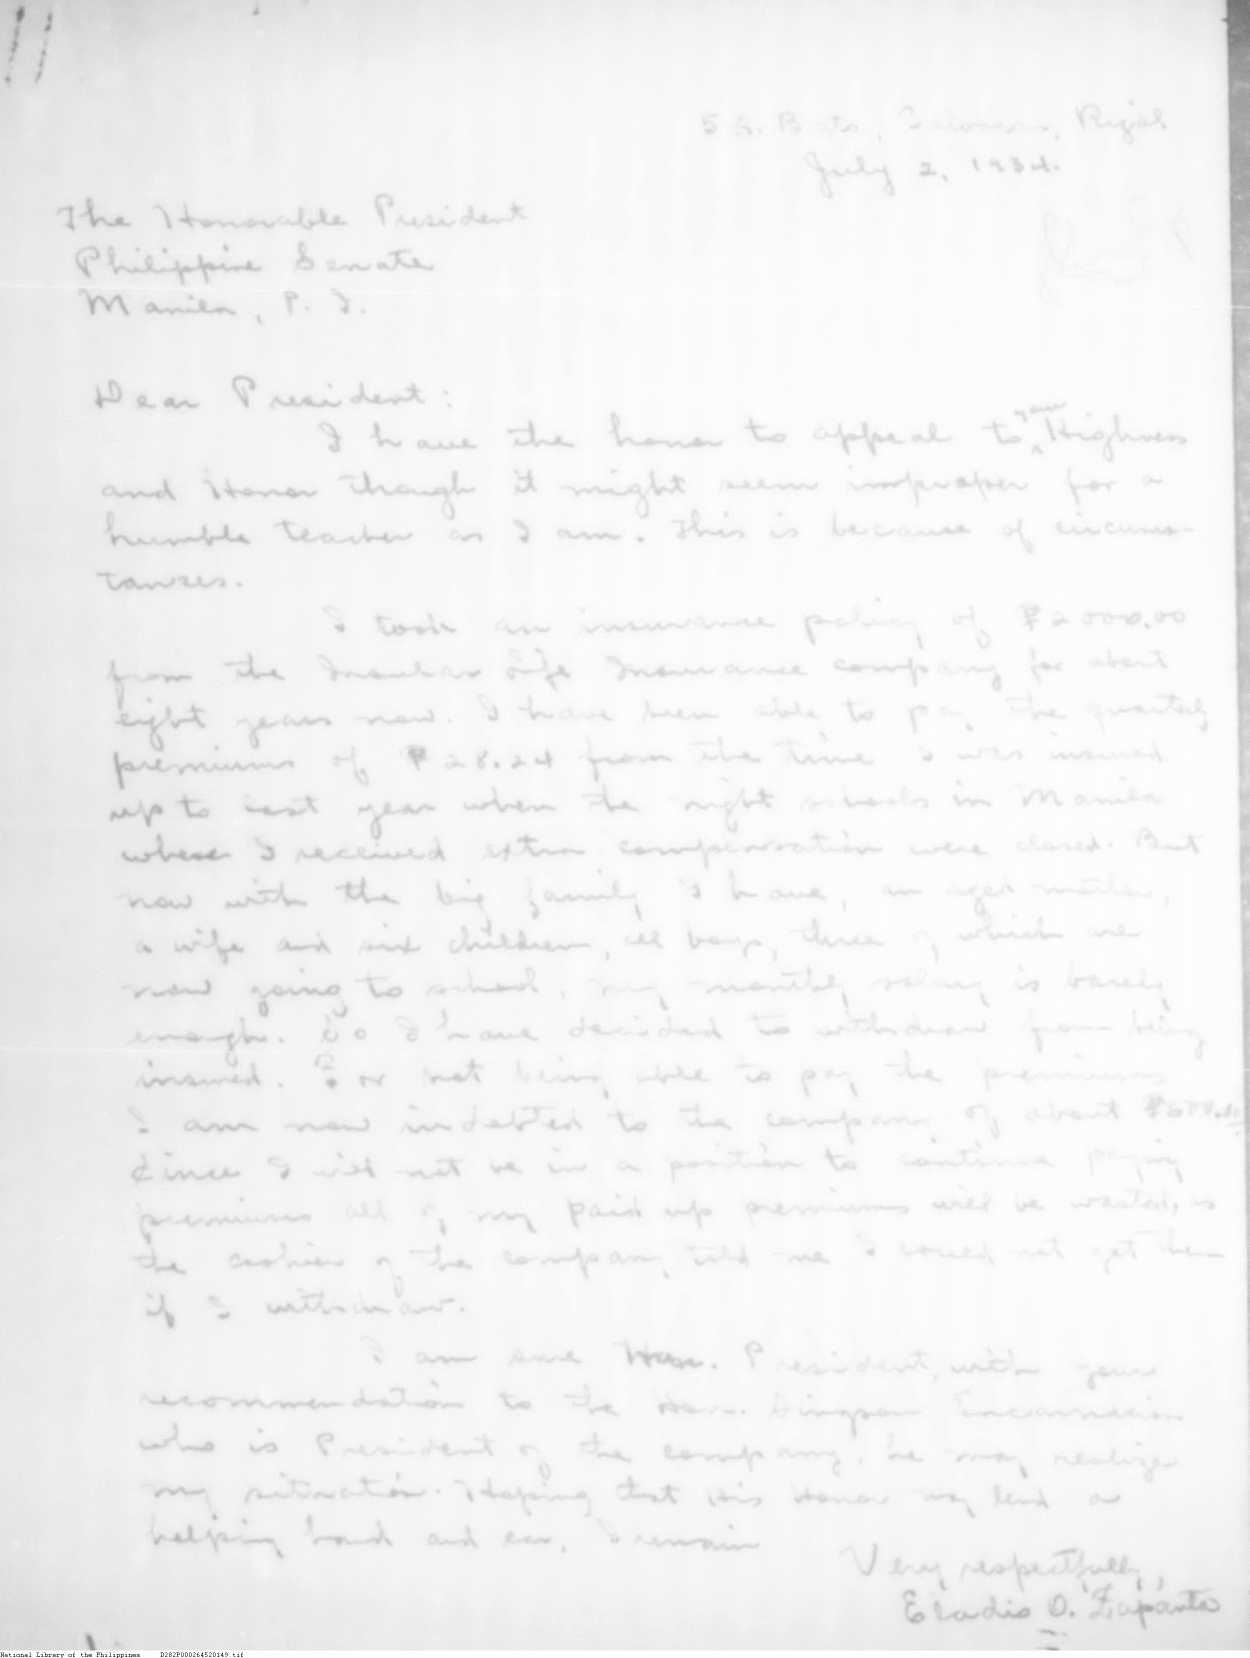 Rizal
July 2, 1934.
The Honorable President
Philippine Senate
Manila, P. I.
Dear President:
I have the honor to appeal to your Highness
and Honor though it might seem improper for a
humble teacher as I am. This is because of circums-
tances.
I took an insurance policy of ₱2000.00
from the Insular Life Insurance company for about
eight years now. I have been able to pay the quarterly
premiums of ₱28.24 from the time I was insured
up to last year when the night schools in Manila
where I received extra compensation were closed. But
now with the big family I have, an aged mother,
a wife and six children, all boys, three of which are
now going to school, my monthly salary is barely
enough. So I have decided to withdraw from being
insured. For not being able to pay the premiums
I am now indebted to the company of about
Since I will not be in a position to continue paying
premiums all of my paid up premiums will be wasted, as
the cashier of the company told me I could not get them
if I withdraw.
I am sure Hon. President, with your
recommendation to the Hon. Encarnacion
who is President of the company, he may realize
my situation. Hoping that His Honor may lend a
helping hand and ear, I remain
Very respectfully,
Eladio O. Zapanta
National Library of the Philippines D282P000264520149.tif